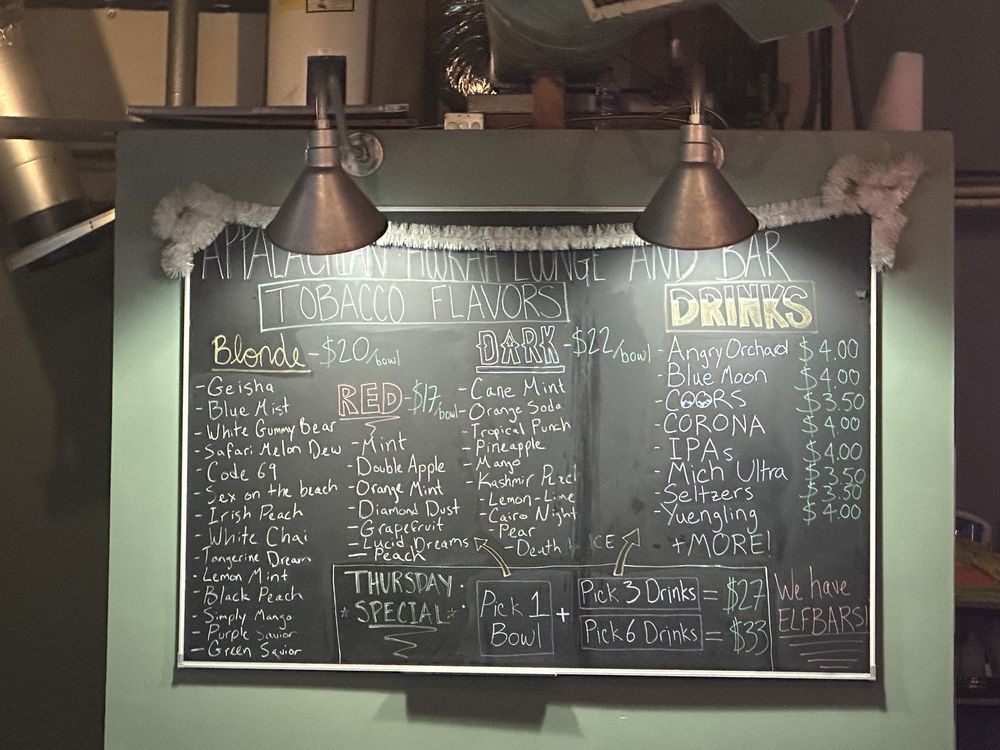 APPALACHIAN HOOKAH LOUNGE AND BAR
TOBACCO FLAVORS
Blonde - $20/bowl
- Geisha
- Blue Mist
- White Gummy Bear
- Safari Melon Dew
- Code 69
- Sex on the beach
- Irish Peach
- White Chai
- Tangerine Dream
- Lemon Mint
- Black Peach
- Simply Mango
- Purple Savior
- Green Savior
RED - $17/bowl
- Mint
- Double Apple
- Orange Mint
- Diamond Dust
- Grapefruit
- Lucid Dreams
- Peach
DARK - $22/bowl
- Cane Mint
- Orange Soda
- Tropical Punch
- Pineapple
- Mango
- Kashmir Peach
- Lemon-Lime
- Cairo Night
- Pear
- Death ICE
DRINKS
- Angry Orchard $4.00
- Blue Moon $4.00
- COORS $3.50
- CORONA $4.00
- IPAs $4.00
- Mich Ultra $3.50
- Seltzers $3.50
- Yuengling $4.00
+MORE!
THURSDAY
* SPECIAL *
Pick 1
Bowl
+
Pick 3 Drinks = $27
Pick 6 Drinks = $33
We have
ELFBARS!